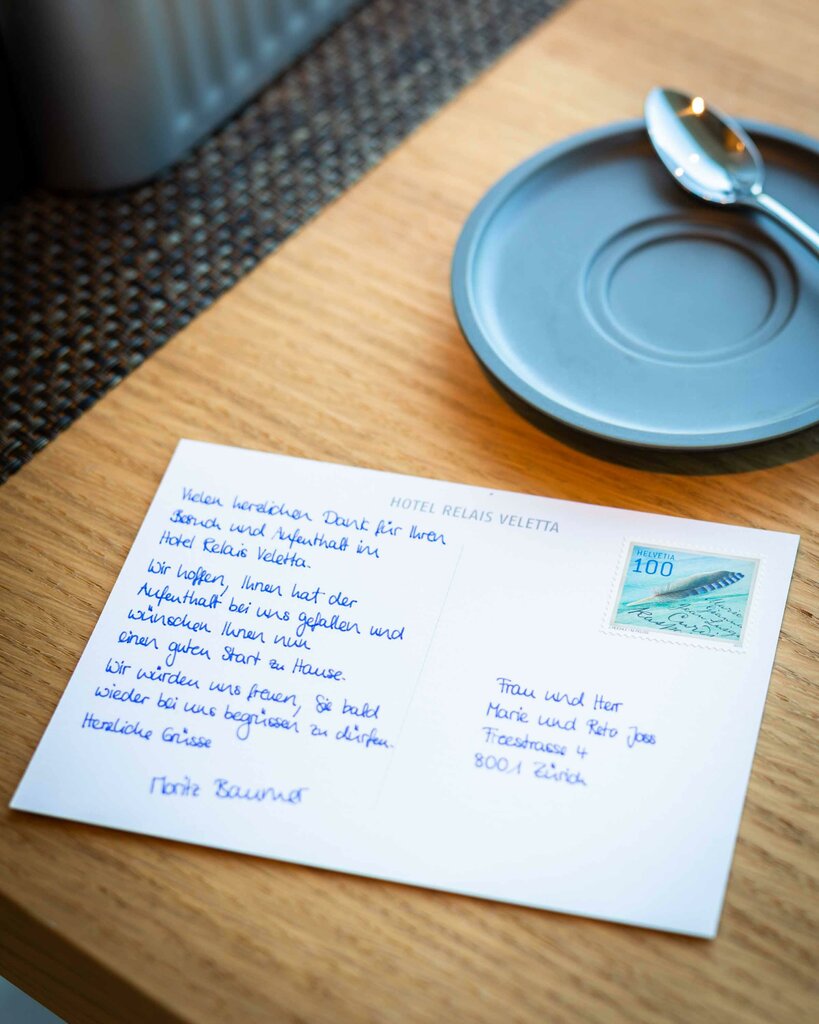 HOTEL RELAIS VELETTA
Vielen herzlichen Dank für Ihren
Besuch und Aufenthalt im
Hotel Relais Veletta.
Wir hoffen, Ihnen hat der
Aufenthalt bei uns gefallen und
wünschen Ihnen nun
einen guten Start zu Hause.
Wir würden uns freuen, Sie bald
wieder bei uns begrüssen zu dürfen.
Herzliche Grüsse
Moritz Baumer
HELVETIA
100
Frau und Herr
Marie und Reto Joss
Freestrasse 4
8001 Zürich